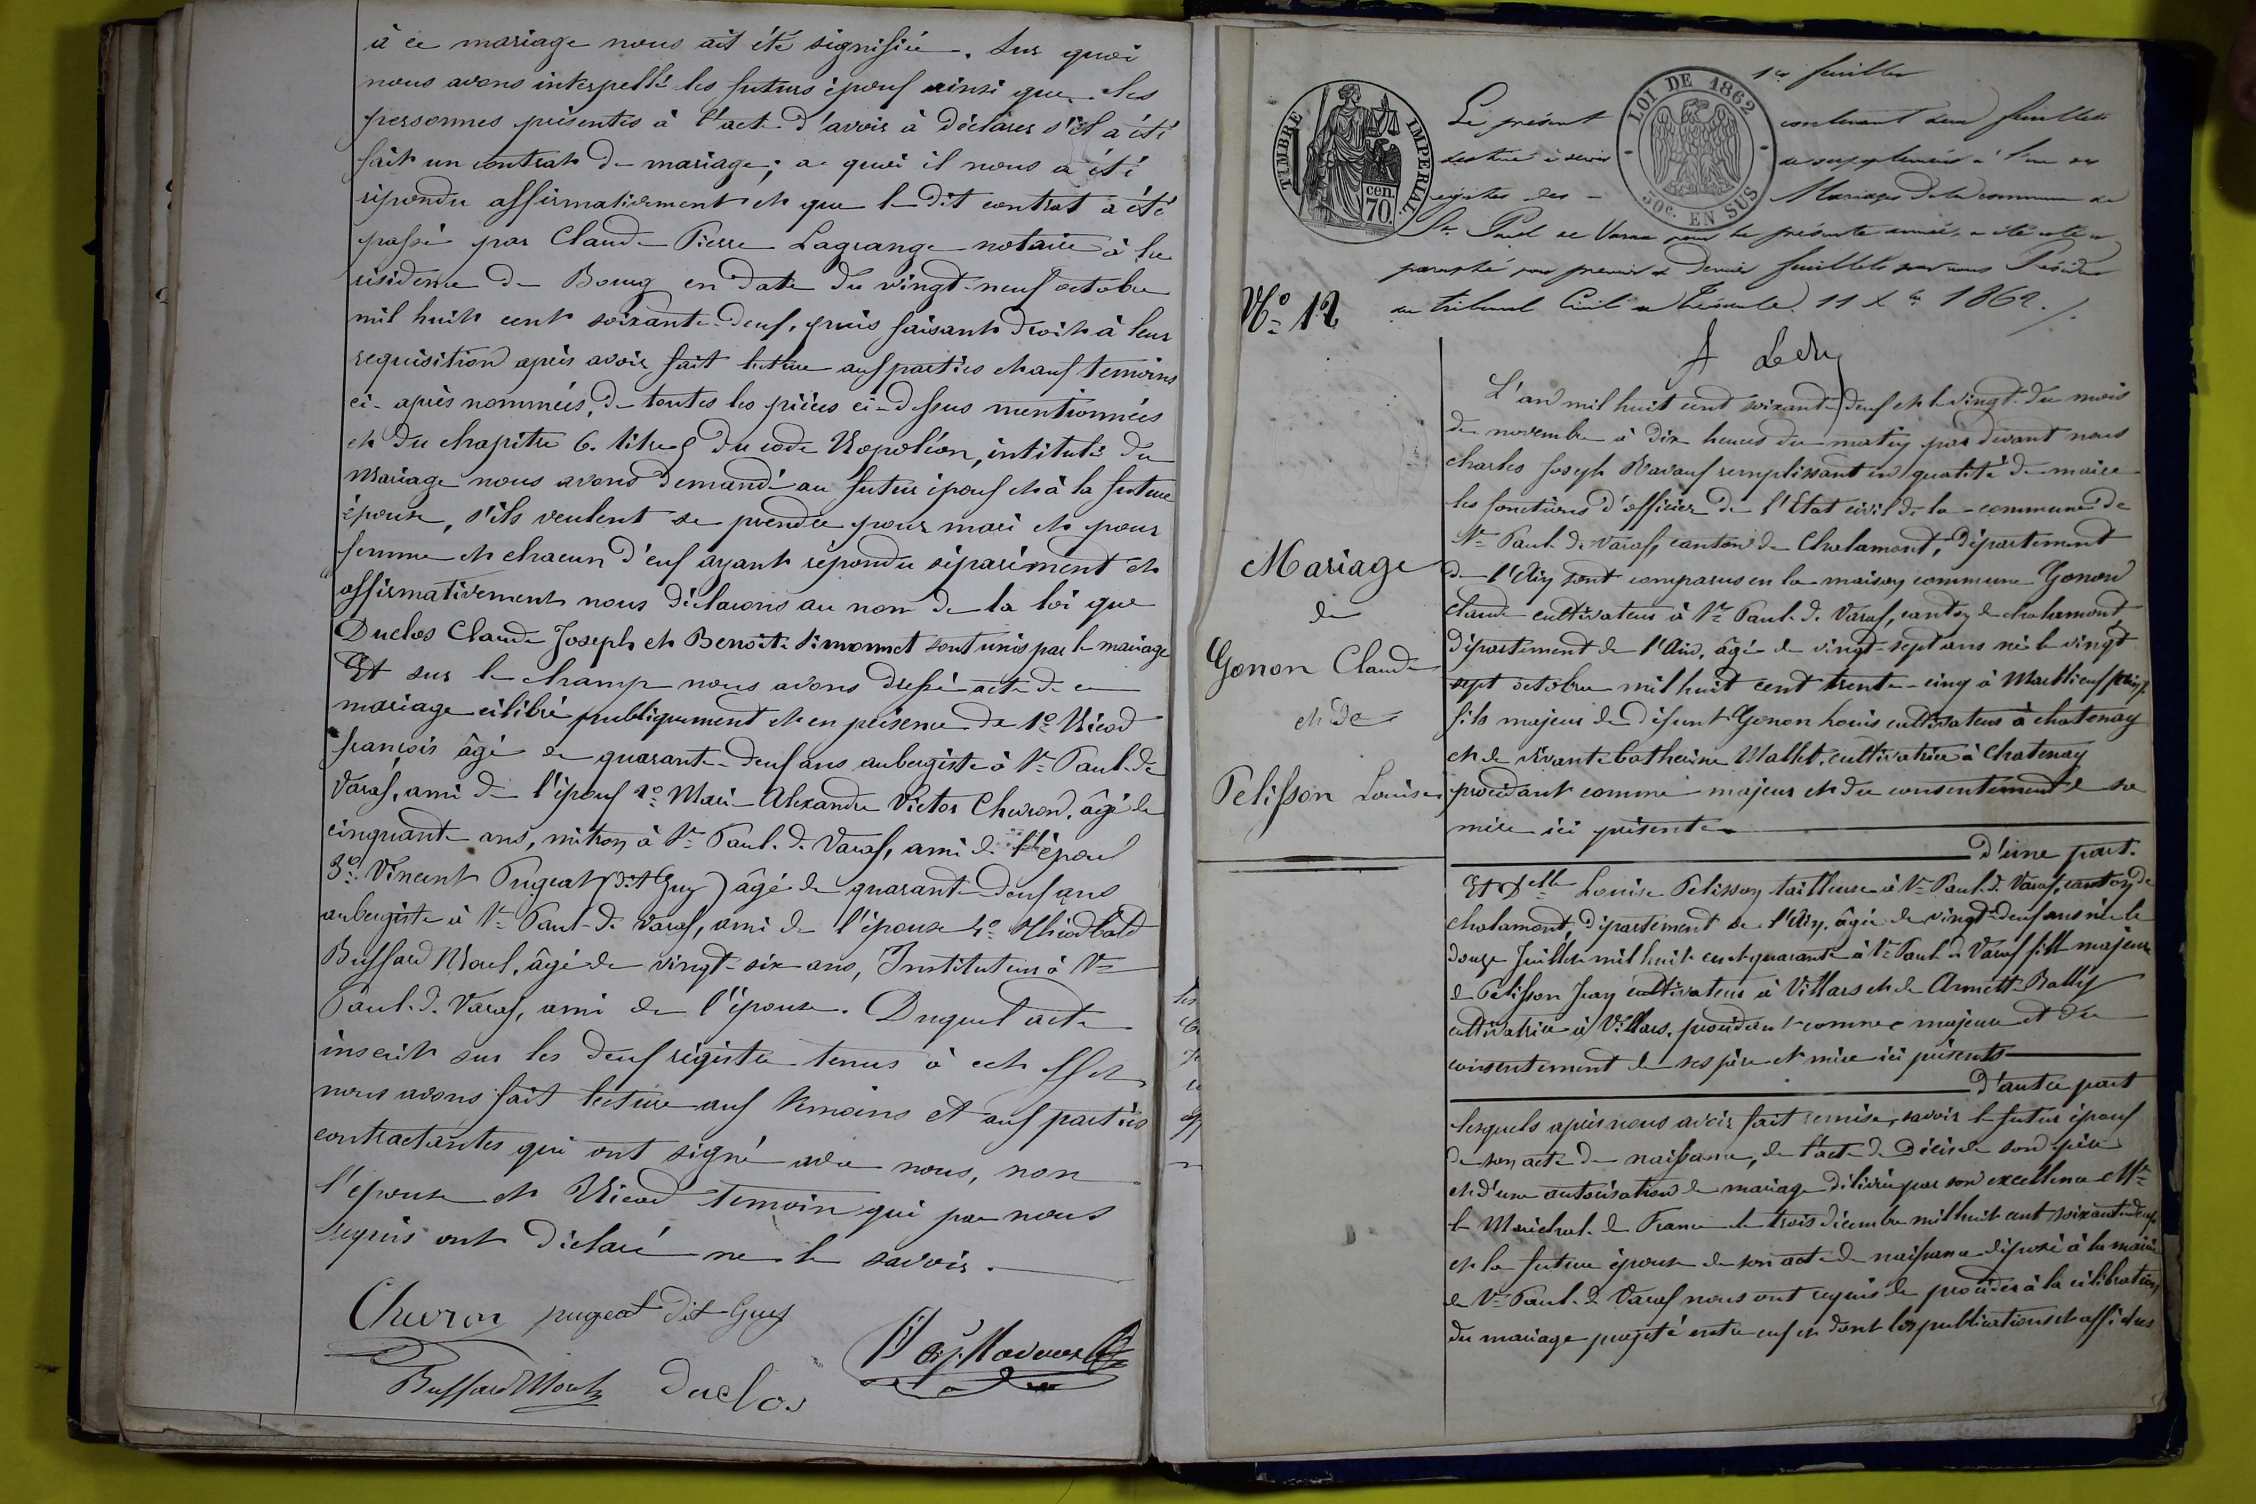 à ce mariage nous ait été signifiée. Sur quoi
nous avons interpellé les futurs époux ainsi que les
personnes présentes à l'acte d'avoir à déclarer s'il a été
fait un contrat de mariage; a quoi il nous a été
répondu affirmativement et que le dit contrat a été
passé par Claude Pierre Lagrange notaire à la
résidence de Bourg en date du vingt-neuf octobre
mil huit cent soixante-deux, puis faisant droit à leur
requisition après avoir fait lecture aux parties et aux temoins
ci-après nommées, de toutes les pièces ci-dessus mentionnées
et du chapitre 6. titre 5 du code Napoléon, intitulé du
Mariage nous avons demandé au futur époux et à la future
épouse, s'ils veulent se prendre pour mari et pour
femme et chacun d'eux ayant répondu séparément et
affirmativement nous déclarons au nom de la loi que
Duclos Claude Joseph et Benoite Simonnet sont unis par le mariage
Et sur le champ nous avons dressé acte de ce
mariage célébré publiquement et en présence de 1º Nicod
françois âgé de quarante-deux ans aubergiste à St Paul-de
Varax, ami de l'époux 2º Marie Alexandre Victor Chevron, âgé de
cinquante ans, mitron à St Paul-de-Varax, ami de l'époux
3º Vincent Pugeat (dit Guy) âgé de quarante deux ans
aubergiste à St Paul-de Varax, ami de l'épouse 4º Théodbald
Buffard Morel, âgé de vingt-six ans, Instituteur à St
Paul-de Varax, ami de l'épouse. Duquel acte
inscrit sur les deux régistre tenus à cet effet
nous avons fait lecture aux temoins et aux parties
contractantes qui ont signé avec nous, non
l'épouse et Nicod temoin qui par nous
requis ont déclaré ne le savoir.
Chevron pugeat dit Guy
Buffard Morel Duclos
TIMBRE IMPERIAL
cen. 70.
LOI DE 1862
50c. EN SUS
1er feuillet
Le présent contenant deux feuillets
destiné à servir de supplément à l'un des
registres des Mariages de la commune de
St Paul de Varax pour la présente année, a été coté et
paraphé par premier et dernier feuillets par nous Président
du tribunal Civil de Trévoux le 11 Xbre 1862.
Nº 12
Mariage
de
Gonon Claude
et de
Pelisson Louise
L'an mil huit cent soixante deux et le vingt du mois
de novembre à dix heures du matin par devant nous
Charles Joseph Ravaux remplissant en qualité de maire
les fonctions d'officier de l'Etat civil de la commune de
St Paul-de Varax, canton de Chalamont, département
de l'Ain sont comparus en la maison commune Gonon
Claude cultivateur à St Paul-de Varax, canton de chalamont
département de l'Ain, âgé de vingt-sept ans né le vingt
sept octobre mil huit cent trente-cinq à Marlieux
fils majeur de défunt Gonon Louis cultivateur à chatenay
et de vivante Catherine Mallet, cultivatrice à Chatenay
procédant comme majeur et du consentement de sa
mère ici présente
d'une part.
Et Delle Louise Pelisson tailleuse à St Paul-de Varax, canton de
Chalamont, département de l'Ain, âgée de vingt-deux ans née le
douze Juillet mil huit cent quarante à St Paul de Varax fille majeure
de Pelisson Jean cultivateur à Villars et de Annette Bally
cultivatrice à Villars, procédant comme majeure et du
consentement de ses père et mère ici présents
D'autre part
lesquels après nous avoir fait remise, savoir le futur époux
de son acte de naissance, de l'acte de décès de son père
et d'une autorisation de mariage délivrée par son excellence Mr
le Maréchal de France le trois décembre mil huit cent soixante deux
et la future épouse de son acte de naissance déposé à la mairie
de St Paul-de Varax nous ont requis de procéder à la célébration
du mariage projeté entre eux et dont les publications et affiches